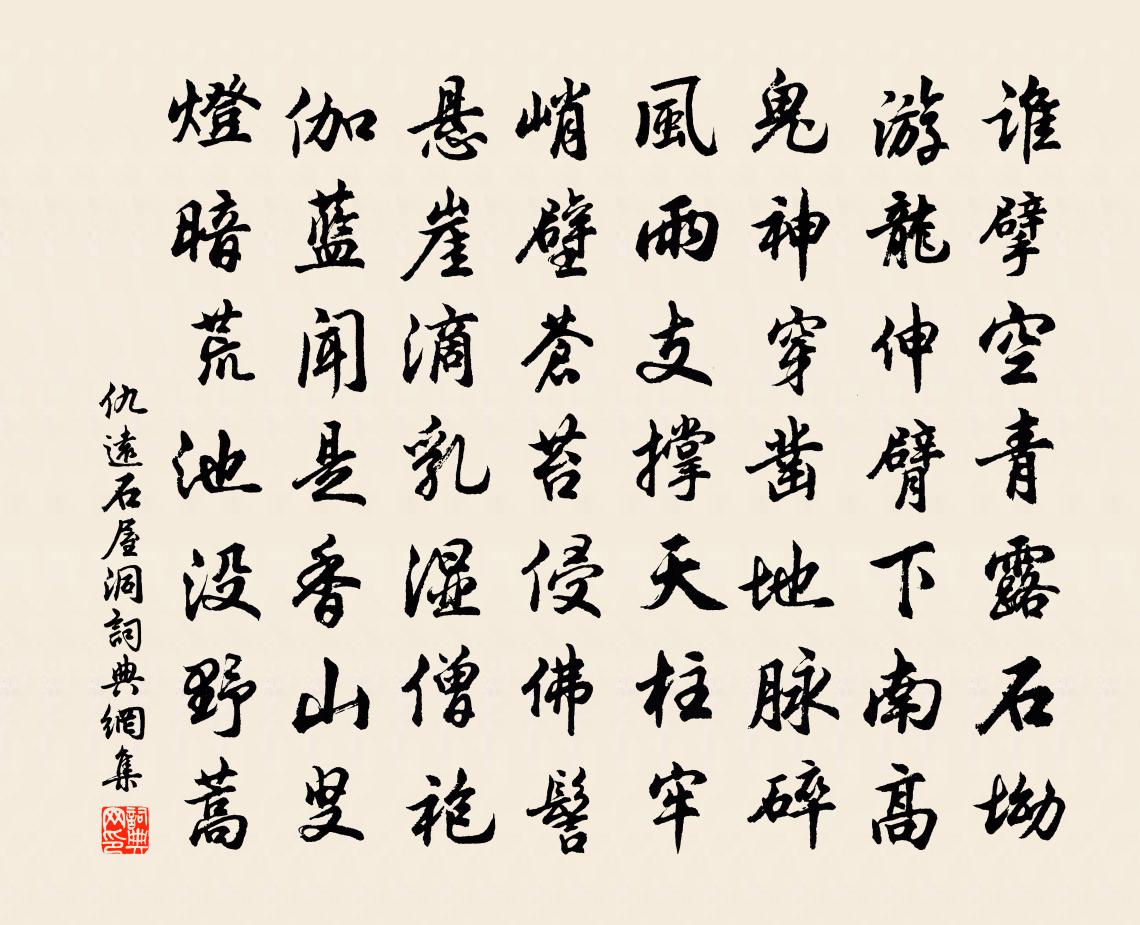 谁擘空青露石坳
游龍伸臂下南髙
鬼神穿凿地脉碎
風雨支撑天柱牢
峭壁蒼苔侵佛髻
悬崖滴乳湿僧袍
伽藍闻是香山叟
燈暗荒池没野蒿
仇遠石屋洞詞典網集
詞典网印